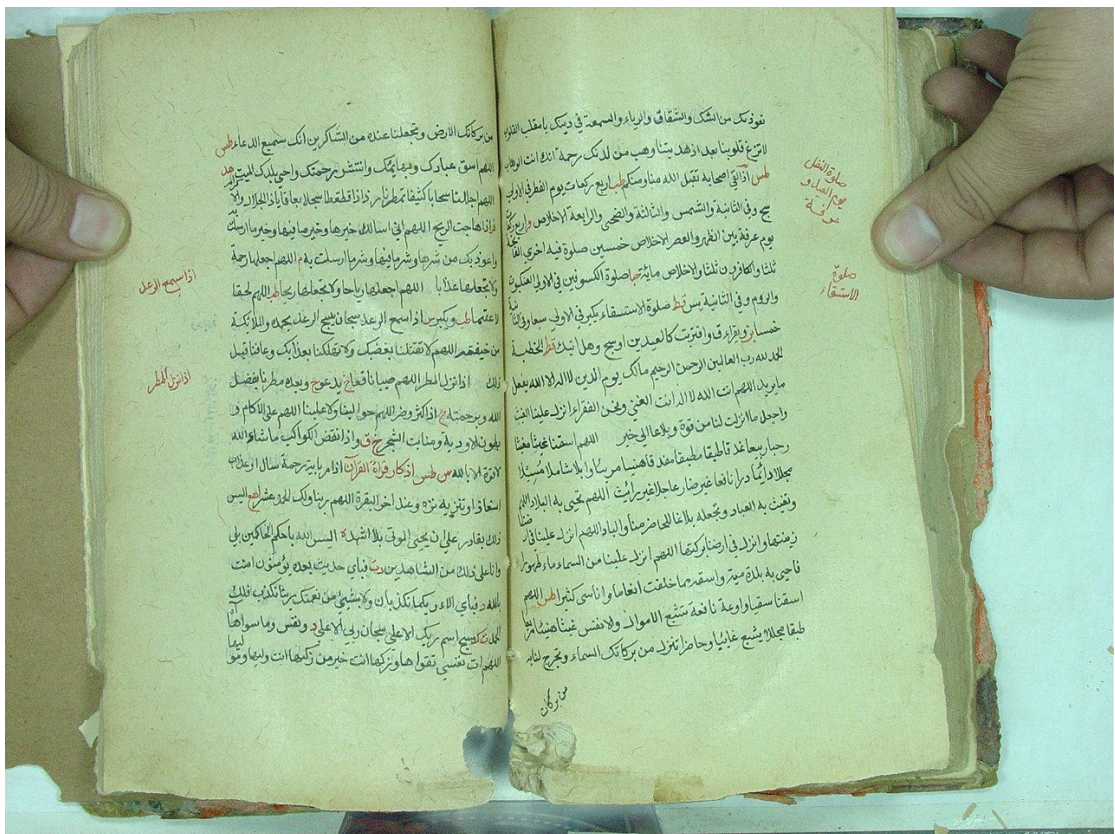 نعوذ بك من الشك والشقاق والرياء والسمعة في دينك يا مقلب القلوب
لا تزغ قلوبنا بعد اذ هديتنا وهب من لدنك رحمة انك انت الوهاب
طس اذا لقي اصحابه تقبل الله منا ومنكم طب اربع ركعات يوم الفطر في الاولى
سبح وفي الثانية والشمس والثالثة والضحى والرابعة الاخلاص
يوم عرفة بين الظهر والعصر الاخلاص خمسين صلوة فيه اخرى
ثلثا والكافرون ثلثا والاخلاص مائة صلوة الكسوفين في الاولى العنكبوت
والروم وفي الثانية يس قط صلوة الاستسقاء يكبر في الاولى سبعا وفي
خمسا ويقرأ ق واقتربت كالعيدين او سبح وهل اتيك قط الخطبة
الحمد لله رب العالمين الرحمن الرحيم مالك يوم الدين لا اله الا الله يفعل
ما يريد اللهم انت الله لا اله انت الغني ونحن الفقراء انزل علينا الغيث
واجعل ما انزلت لنا من قوة وبلاغا الى خير اللهم اسقنا غيثا مغيثا
رحبا ربيعا غدقا طبقا مغدقا هنيئا مريئا
مجللا دائما دررا نافعا غير ضار عاجلا غير رائث اللهم تحيي به البلاد
وتغيث به العباد وتجعله بلاغا للحاضر منا والباد اللهم انزل علينا في ارضنا
زينتها وانزل في ارضنا بركتها اللهم انزل علينا من السماء ماء طهورا
فاحيي به بلدة ميتا واسقه مما خلقت انعاما واناسي كثيرا طس اللهم
اسقنا سقيا واوعة نافعة تشبع الاموال والانفس غيثا هنيئا مريئا
طبقا مجللا يشبع غائبنا وحاضرنا تنزل من بركاتك السماء وتخرج لنا به
من بركات
صلوة النفل
يوم العيد و
عرفة
صلوة
الاستسقاء
من بركاتك الارض وتجعلنا عنده من الشاكرين انك سميع الدعاء طس
اللهم اسق عبادك وبهائمك وانتشر رحمتك واحي بلدك الميت
اللهم جللنا سحابا كثيفا تمطرنا رذاذا قطقطا سجلا بعاقا يا ذا الجلال
فاذا هاجت الريح اللهم اني اسألك خيرها وخير ما فيها وخير ما ارسلت
واعوذ بك من شرها وشر ما فيها وشر ما ارسلت به م اللهم اجعلها رحمة
ولا تجعلها عذابا اللهم اجعلها رياحا ولا تجعلها ريحا طب اللهم لقحا
لا عقيما طب ويكبر س اذا سمع الرعد سبحان يسبح الرعد بحمده والملائكة
من خيفته اللهم لا تقتلنا بغضبك ولا تهلكنا بعذابك وعافنا قبل
ذلك اذا نزل المطر اللهم صيبا نافعا خ يدعو خ وبعده مطرنا بفضل
الله وبرحمته خ اذا كثر وضر اللهم حوالينا ولا علينا اللهم على الاكام و
بطون الاودية ومنابت الشجر خ ق واذا انقض الكواكب ما شاء الله
لا قوة الا بالله س طس اذكار قراءة القرآن اذا مر باية رحمة سال او عذاب
استعاذ او تنزيه نزه وعند اخر البقرة اللهم ربنا ولك الحمد عشرا اليس
ذلك بقادر على ان يحيي الموتى بلى اشهد اليس الله باحكم الحاكمين بلى
وانا على ذلك من الشاهدين د ت فباي حديث بعده يؤمنون امنت
بالله د فباي الاء ربكما تكذبان ولا بشيء من نعمتك ربنا نكذب فلك
الحمد ت سبح اسم ربك الاعلى سبحان ربي الاعلى د ونفس وما سواها
اللهم ات نفسي تقواها وزكها انت خير من زكيها انت وليها
اذا سمع الرعد
اذا نزل المطر